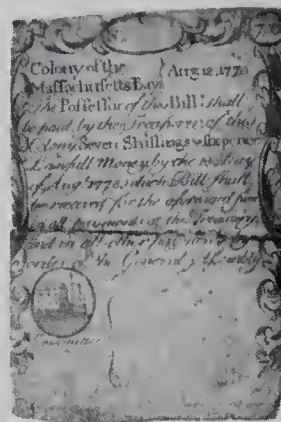 Colony of the } Aug 12. 1775
Massachusetts Bay
The Possessor of this Bill shall
be paid by the Treasurer of this
Colony Seven Shillings & sixpence
Lawfull Money by the
of Aug.t 1778. which Bill shall
be received for the aforesaid Sum
in all payments at the Treasury,
and in all other
order of the General Assembly